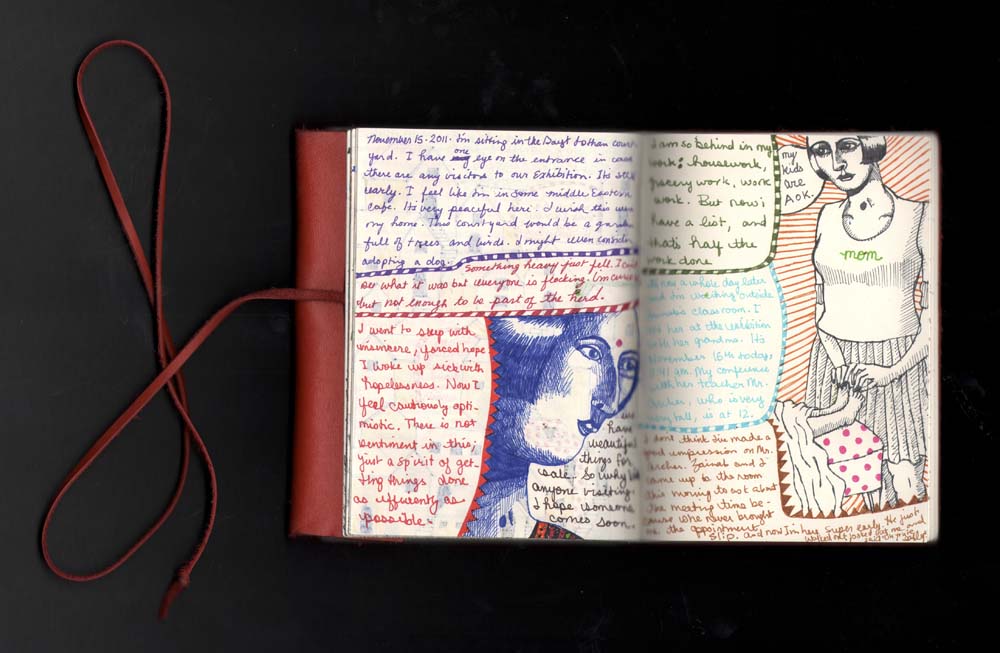 November 15 - 2011. I'm sitting in the Dayt Lothan court
yard. I have one eye on the entrance in case
there are any visitors to our Exhibition. Its still
early. I feel like I'm in some middle Eastern
cafe. Its very peaceful here. I wish this were
my home. This courtyard would be a garden
full of trees and birds. I might even consider
adopting a dog.
Something heavy just fell. I can't
see what it was but everyone is flocking. I'm curious
but not enough to be part of the herd.
I went to sleep with
insincere, forced hope
I woke up sick with
hopelessness. Now I
feel cautiously opti-
mistic. There is not
sentiment in this;
just a spirit of get-
ting things done
as efficiently as
possible.
we
have
beautiful
things for
sale. So why isn't
anyone visiting.
I hope someone
comes soon.
I am so behind in my
work: housework,
grocery work, work
work. But now I
have a list, and
that's half the
work done.
my
kids
are
A OK.
mom
Its now a whole day later
and I'm waiting outside
Zainab's classroom. I
met her at the exhibition
with her grandma. Its
November 16th today
9:41 am. My conference
with her teacher Mr.
Archer, who is very
very tall, is at 12.
I don't think I've made a
good impression on Mr.
Archer. Zainab and I
came up to the room
this morning to ask about
the meeting time be-
cause she never brought
me the appointment
slip. And now I'm here super early. He just
walked out looked at me and
said